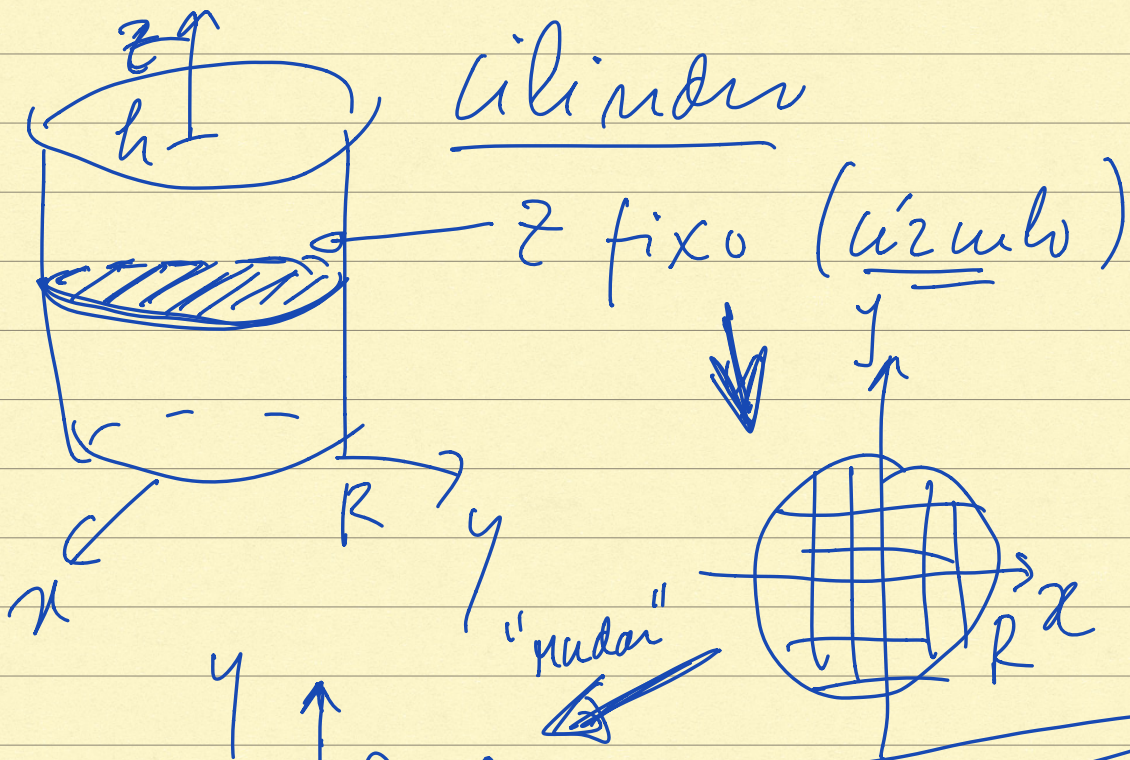 z
cilindro
h
z fixo (círculo)
y
R
y
x
x
R
"mudar"
y